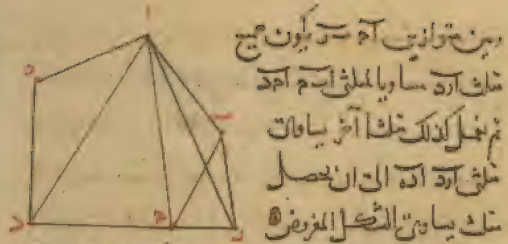 وبين متوازيين آج بر يكون جميع
مثلث ارد مساويا لمثلثي ابج اجد
ثم نعمل كذلك مثلثا آخر يساوي
مثلثي ارد اده الى ان يحصل
مثلث يساوي الشكل المفروض
ا
ه
ب
د
ج
ر